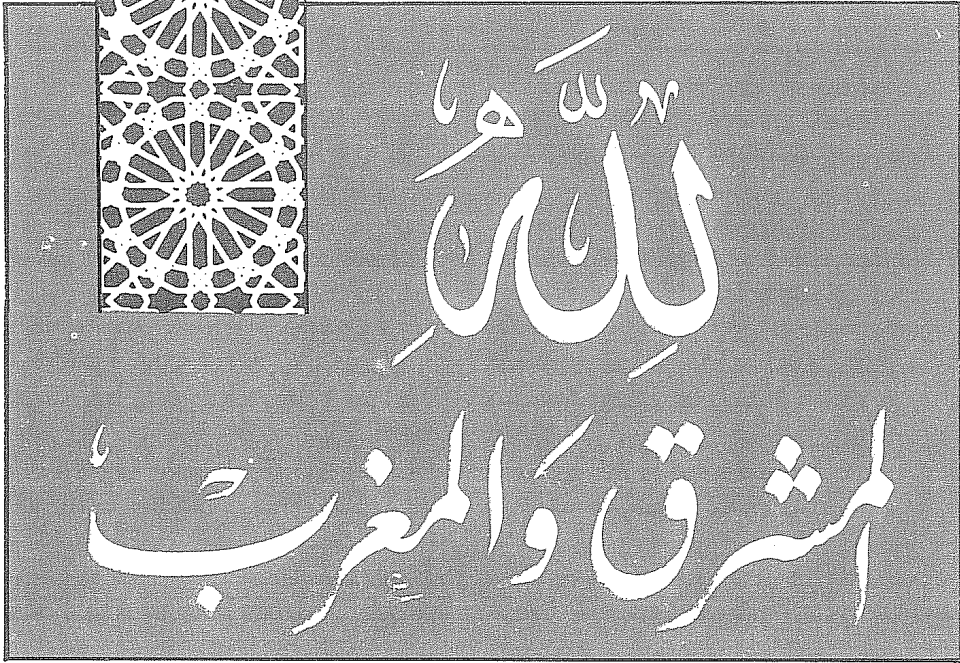 لِلّٰهِ
المشرق وَالمغرب